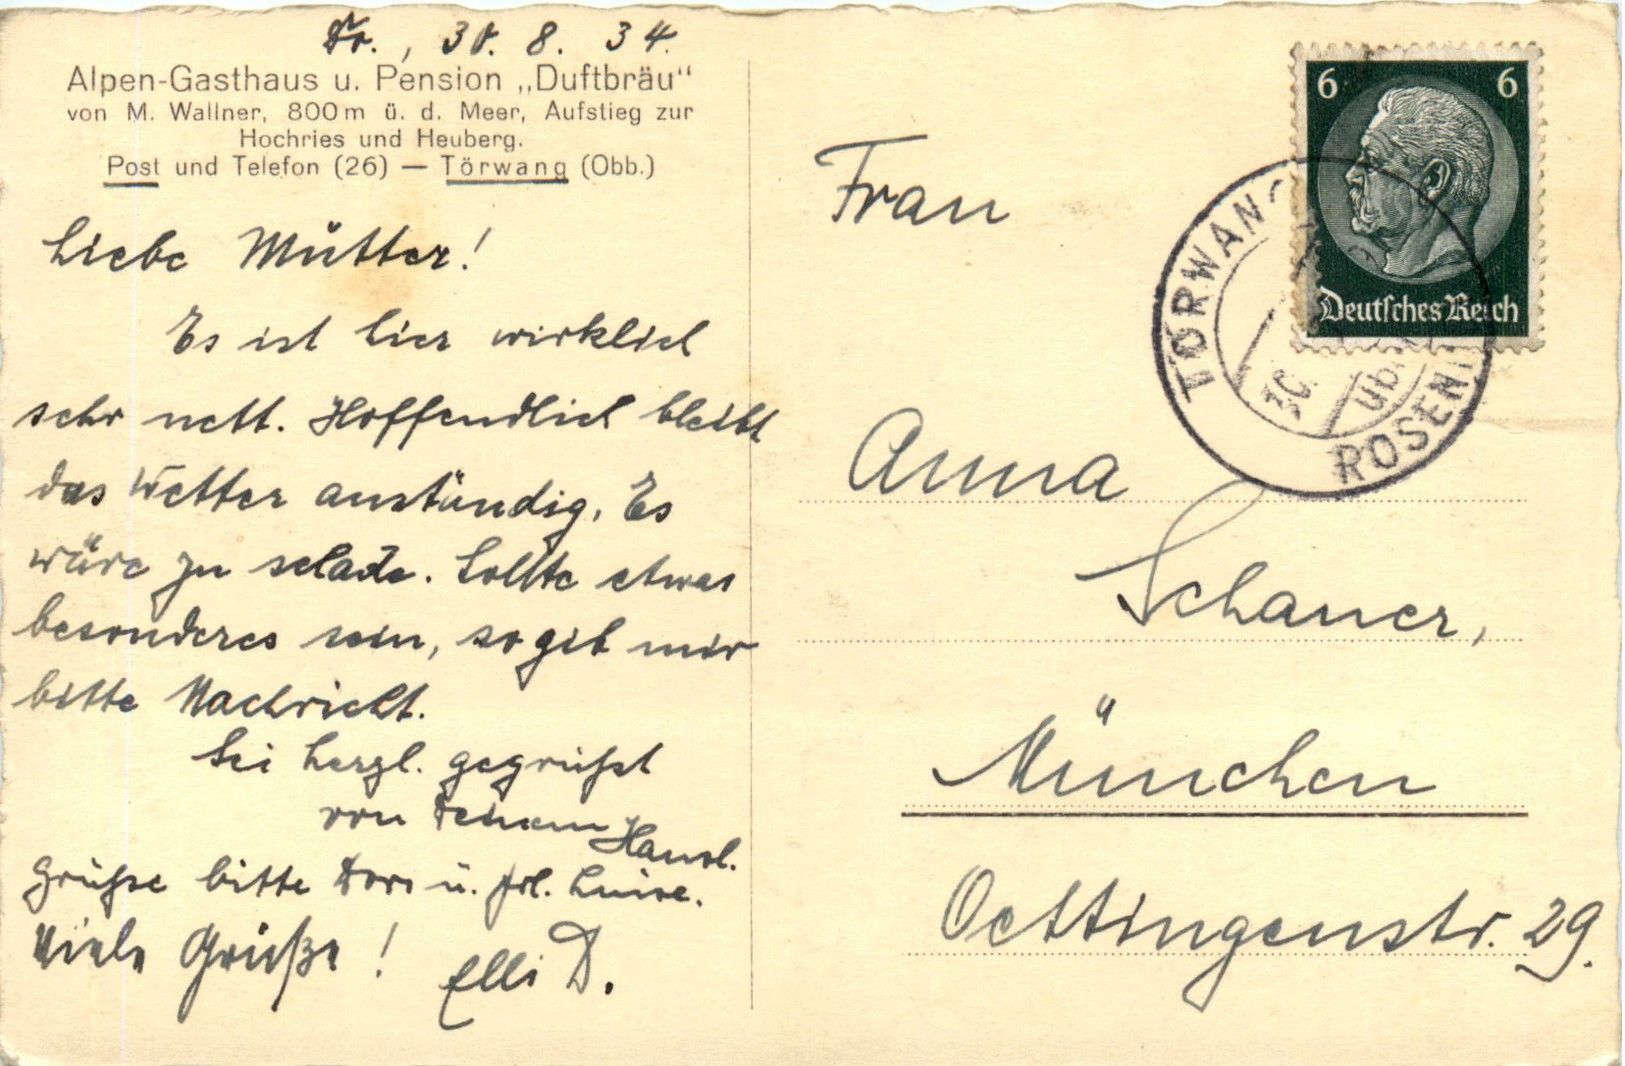 Do., 30. 8. 34.
Alpen-Gasthaus u. Pension „Duftbräu"
von M. Wallner, 800 m ü. d. Meer, Aufstieg zur
Hochries und Heuberg.
Post und Telefon (26) — Törwang (Obb.)
Liebe Mutter!
Es ist hier wirklich
sehr nett. Hoffendlich bleibt
das Wetter anständig. Es
wäre zu schade. Sollte etwas
besonderes sein, so gib mir
bitte Nachricht.
Sei herzl. gegrüßt
von Deinem Hansl.
Grüße bitte Dora u. Frl. Luise.
Viele Grüße! Elli D.
6 6
Deutsches Reich
TÖRWANG
30
ROSENH
Frau
Anna
Schauer,
München
Oettingenstr. 29.